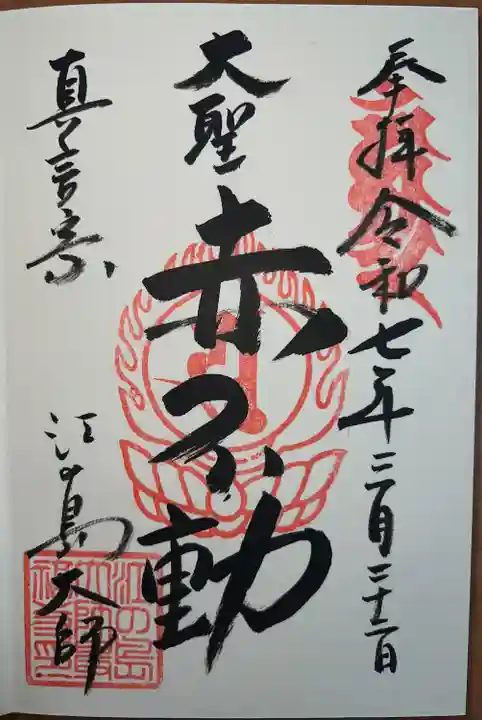 奉拝 令和七年三月二十二日
大聖
赤不動
真言宗 江の島大師